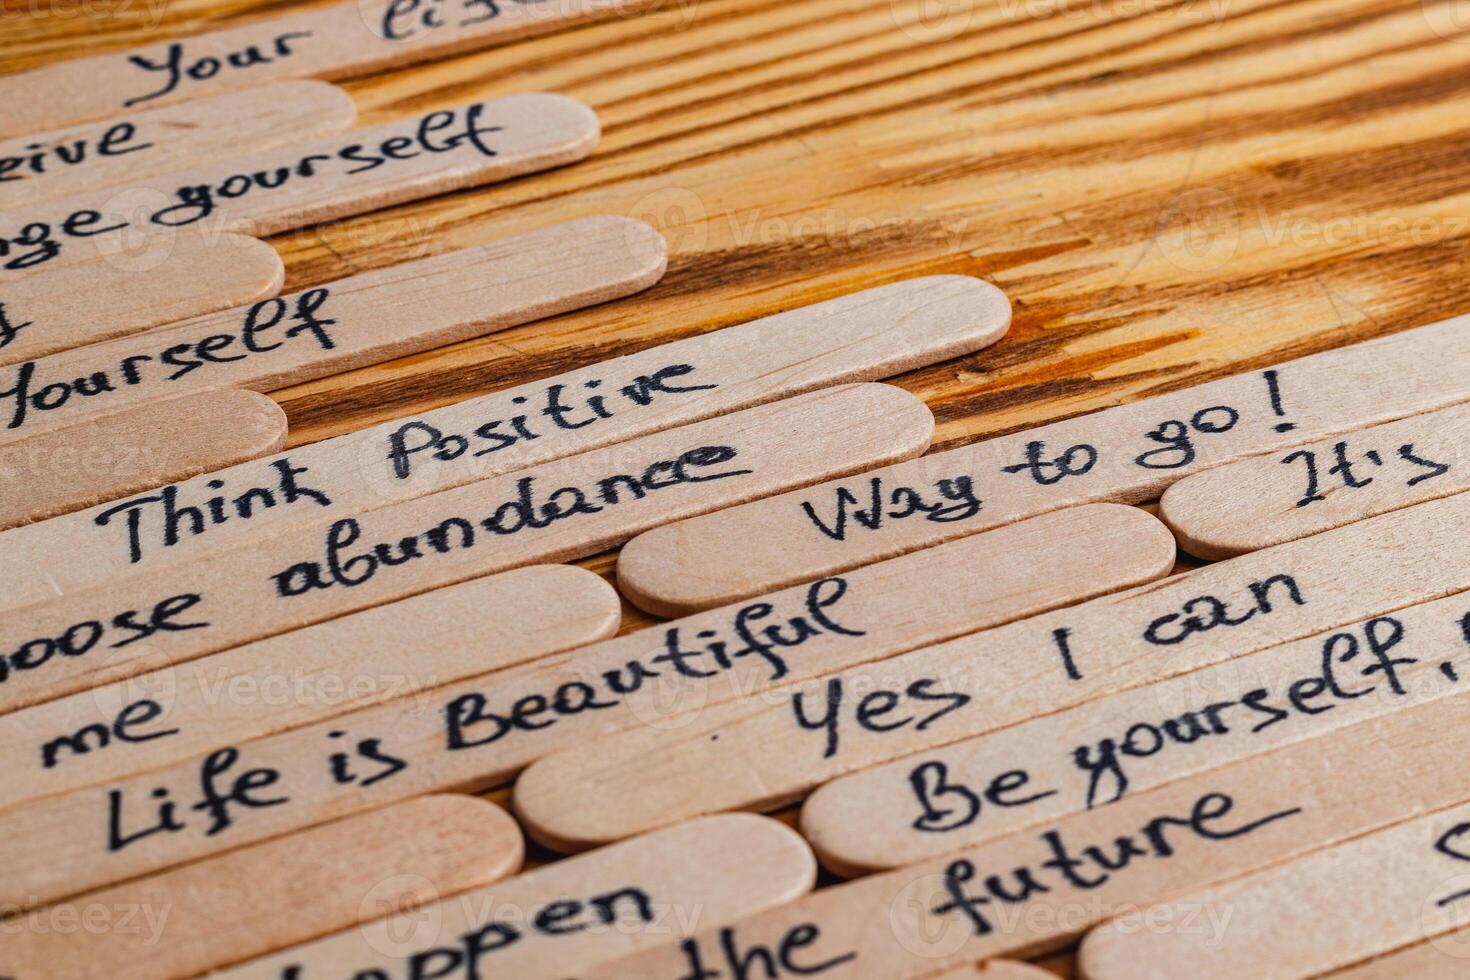 Your
yourself
Yourself
Think Positive
abundance
Way to go!
It's
me
Life is Beautiful
Yes I can
Be yourself,
the future
Vecteezy